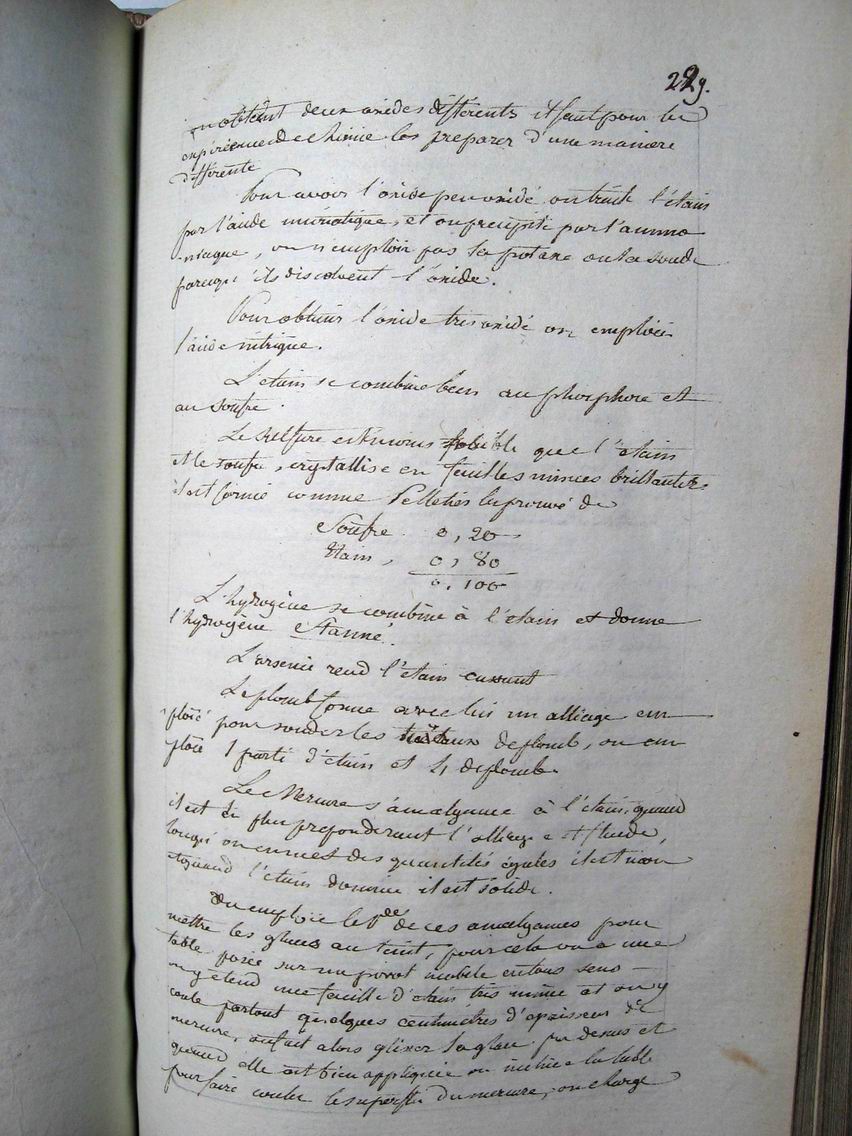 229.
on obtient deux oxides différents il faut pour les
expériences de chimie les preparer d'une maniere
différente
Pour avoir l'oxide peu oxidé on traite l'étain
par l'acide muriatique, et on precipite par l'ammo
niaque, on n'emploie pas la potasse ou la soude
parcequ'ils dissolvent l'oxide.
Pour obtenir l'oxide tres oxidé on emploie
l'acide nitrique.
L'étain se combine bien au phosphore et
au soufre.
Le sulfure est moins fusible que l'étain
et le soufre, crystallise en feuilles minces brillantes
il est formé comme Pelletier l'a prouvé de
Soufre 0,20
Etain, 0,80
0,100
L'hydrogène se combine à l'étain et donne
l'hydrogène etanné.
L'arsenic rend l'étain cassant
Le plomb forme avec lui un alliage em
ploié pour souder les tuiaux de plomb, on em
ploie 1 parti d'étain et 4 de plomb.
Le Mercure s'amalgame à l'étain, quand
il est le plus preponderant l'alliage est fluide,
lorsqu'on en mes des quantités égales il est mou
et quand l'étain domine il est solide.
On emploie le pr de ces amalgames pour
mettre les glaces au teint, pour cela on a une
table posée sur un pivot mobile en tous sens
on y étend une feuille d'étain tres mince et on y
coule partout quelques centimètres d'epaisseur de
mercure, on fait alors glisser la glace par dessus et
quand elle est bien appliquée on incline la table
pour faire couler le superflu du mercure, on charge